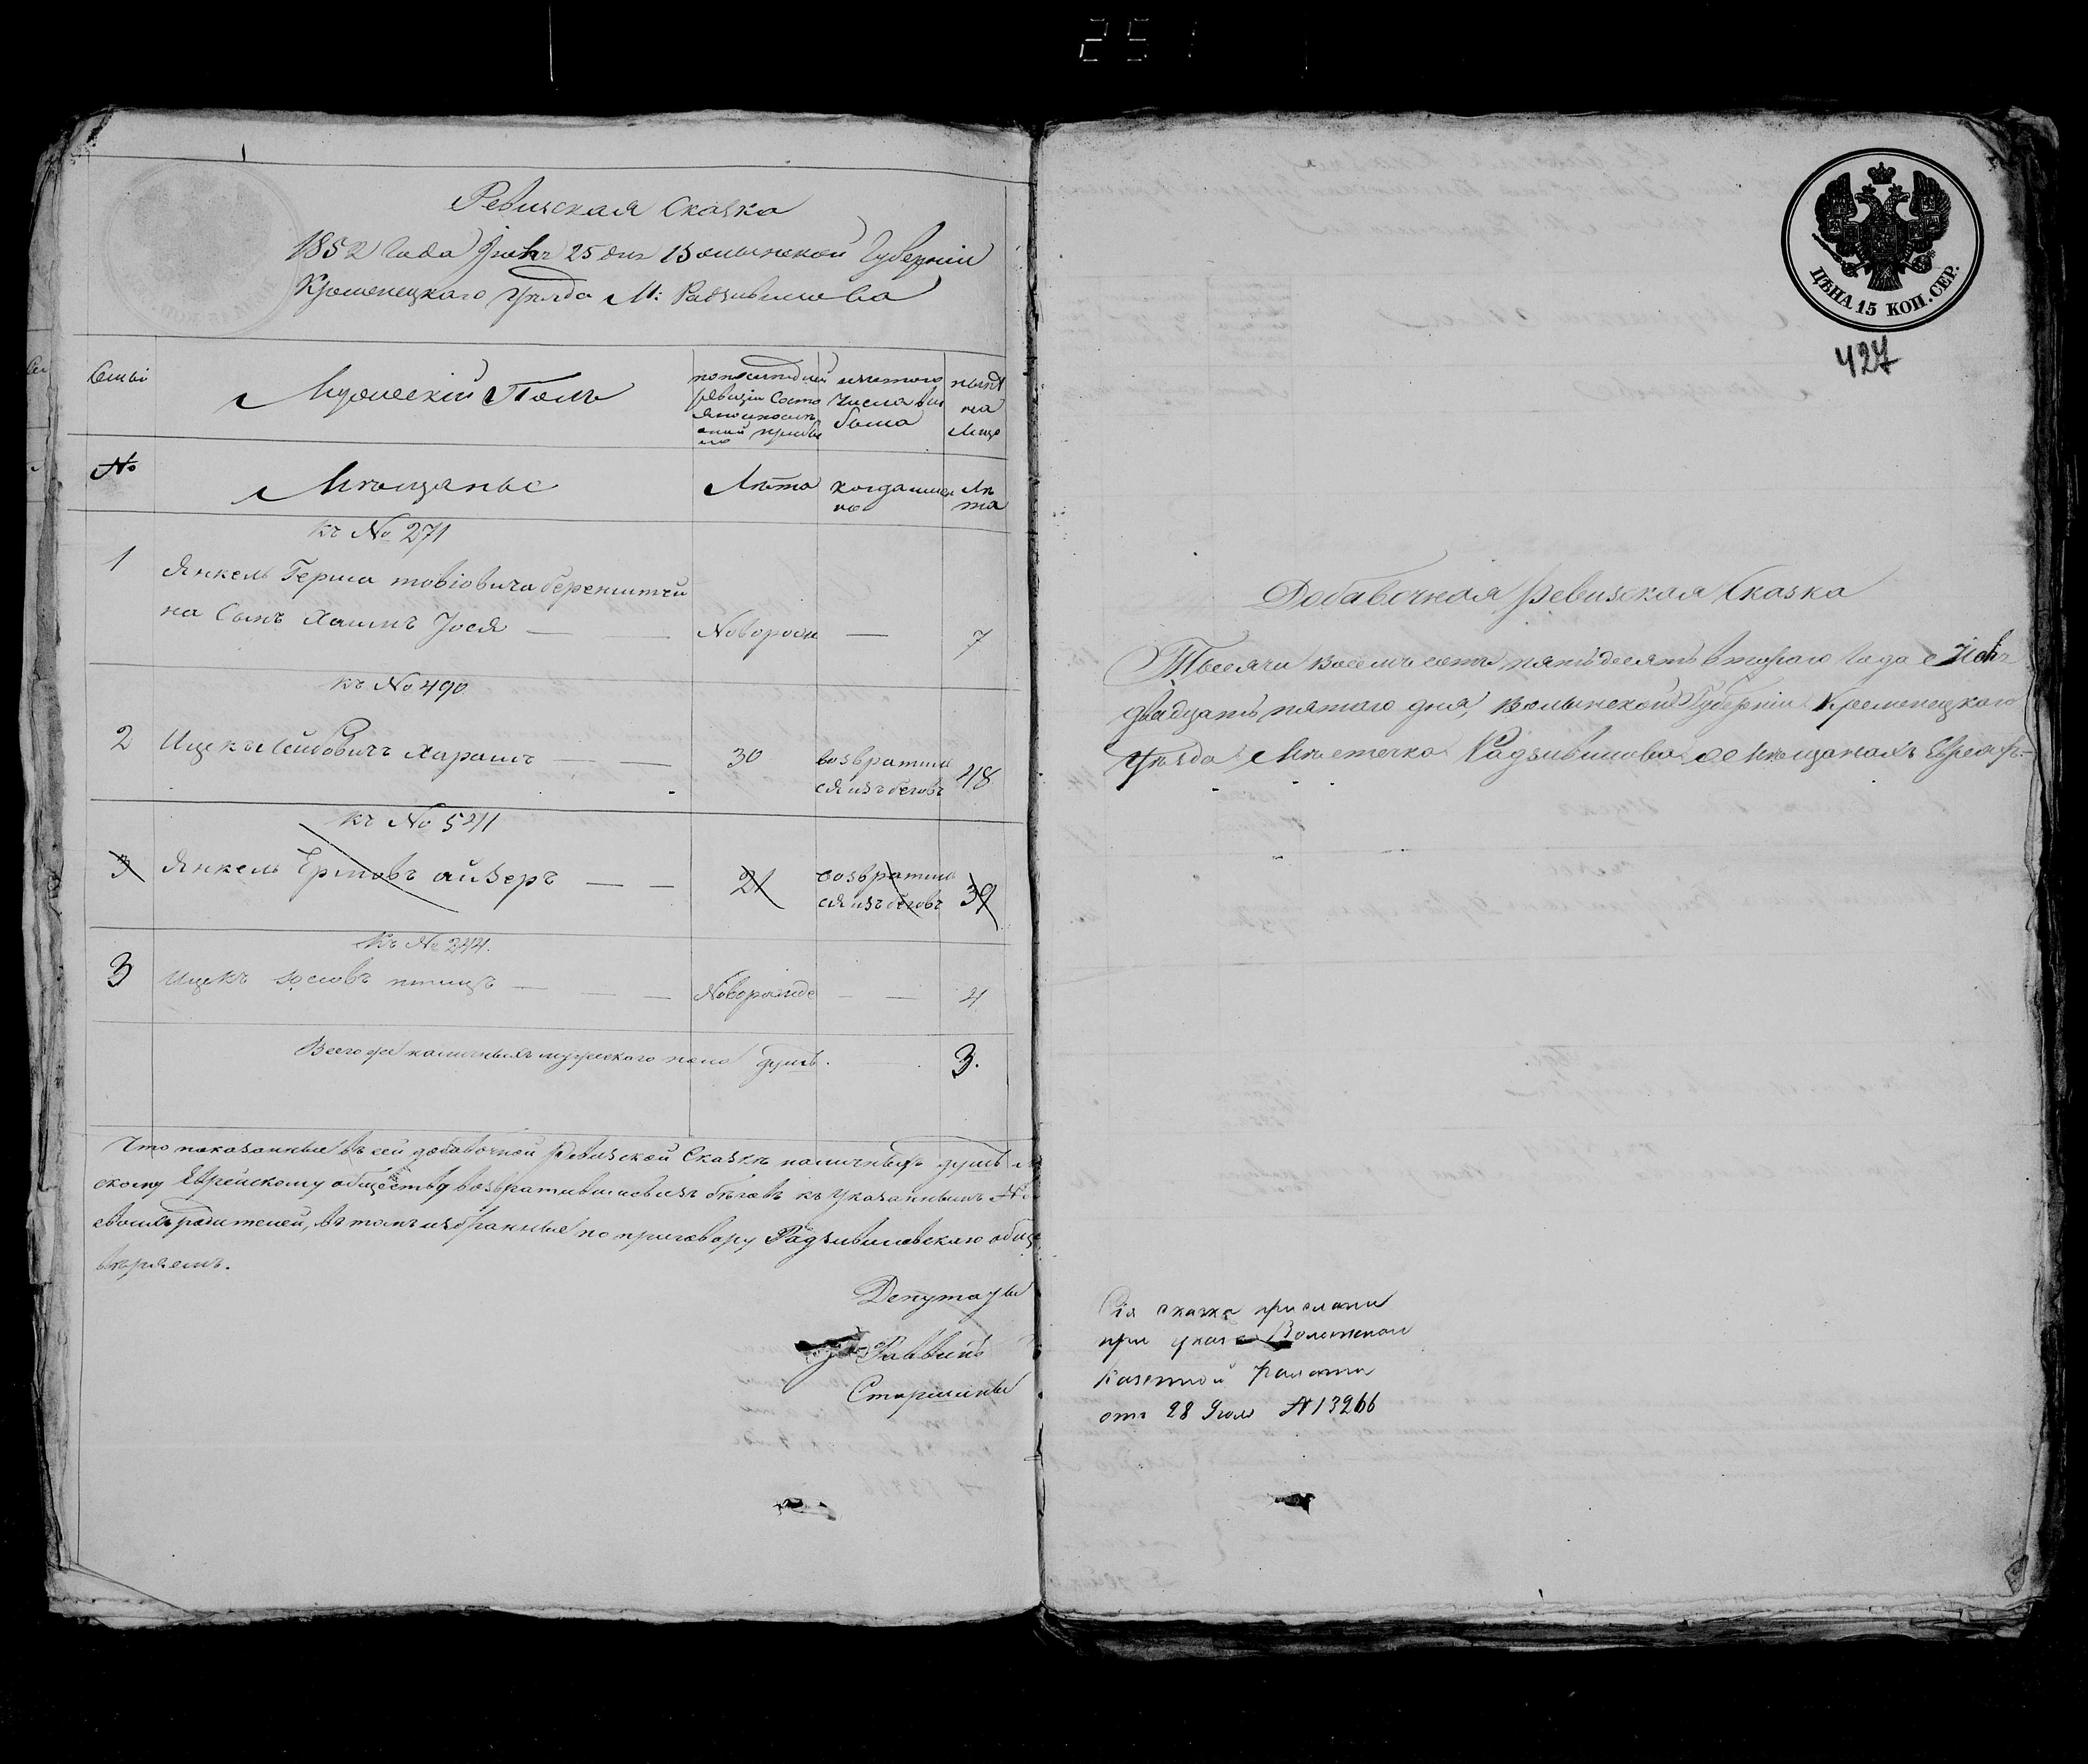 251
Ревизская Сказка
1852 Года Юнь 25 дня Волынской Губерніи
Кременецкаго уѣзда М: Радзивилова
Семьи
Мужескій Полъ
по последней ревизіи состо
изъ того числа вы было
нынѣ на лицо
№
Мѣщанъе
Лѣта
когда имен но
Лѣ та
къ № 271
1
Янкель Герша товіовича беренштей
на Сынъ Хаимъ Іося
Новорож
7
къ № 490
2
Ицекъ Лейбовичъ Харашъ
30
возвратил ся изъ бегов
48
къ № 541
3 Янкель айзеръ
21
возвратил ся изъ бегов
39
Къ № 244.
3
Ицекъ Іосіовъ
Новорожде
4
Всего же наличныхъ мужескаго пола душъ.
3.
Что показанные въ сей добавочной Ревизской Сказкѣ наличныхъ душъ
скому Еврейскому обществу возвратившиесь изъ бѣговъ къ указаннымъ №
своихъ родителей, въ томъ избранные по приговору Радзивиловскаго обще
вѣряемъ.
Депутаты
Раввинъ
Старшины
ЦѢНА 15 КОП. СЕР.
427
Добавочная Ревизская Сказка
Тысяча восемь сотъ пятьдесятъ втораго Года
двадцать пятаго дня, Волынской Губерніи Кременецкаго
уѣзда Мѣстечка Радзивилова о Мѣщанахъ Евреяхъ.
Сія сказка прислана
при указе Волынской
Казенной Палаты
отъ 28 Іюля № 13266